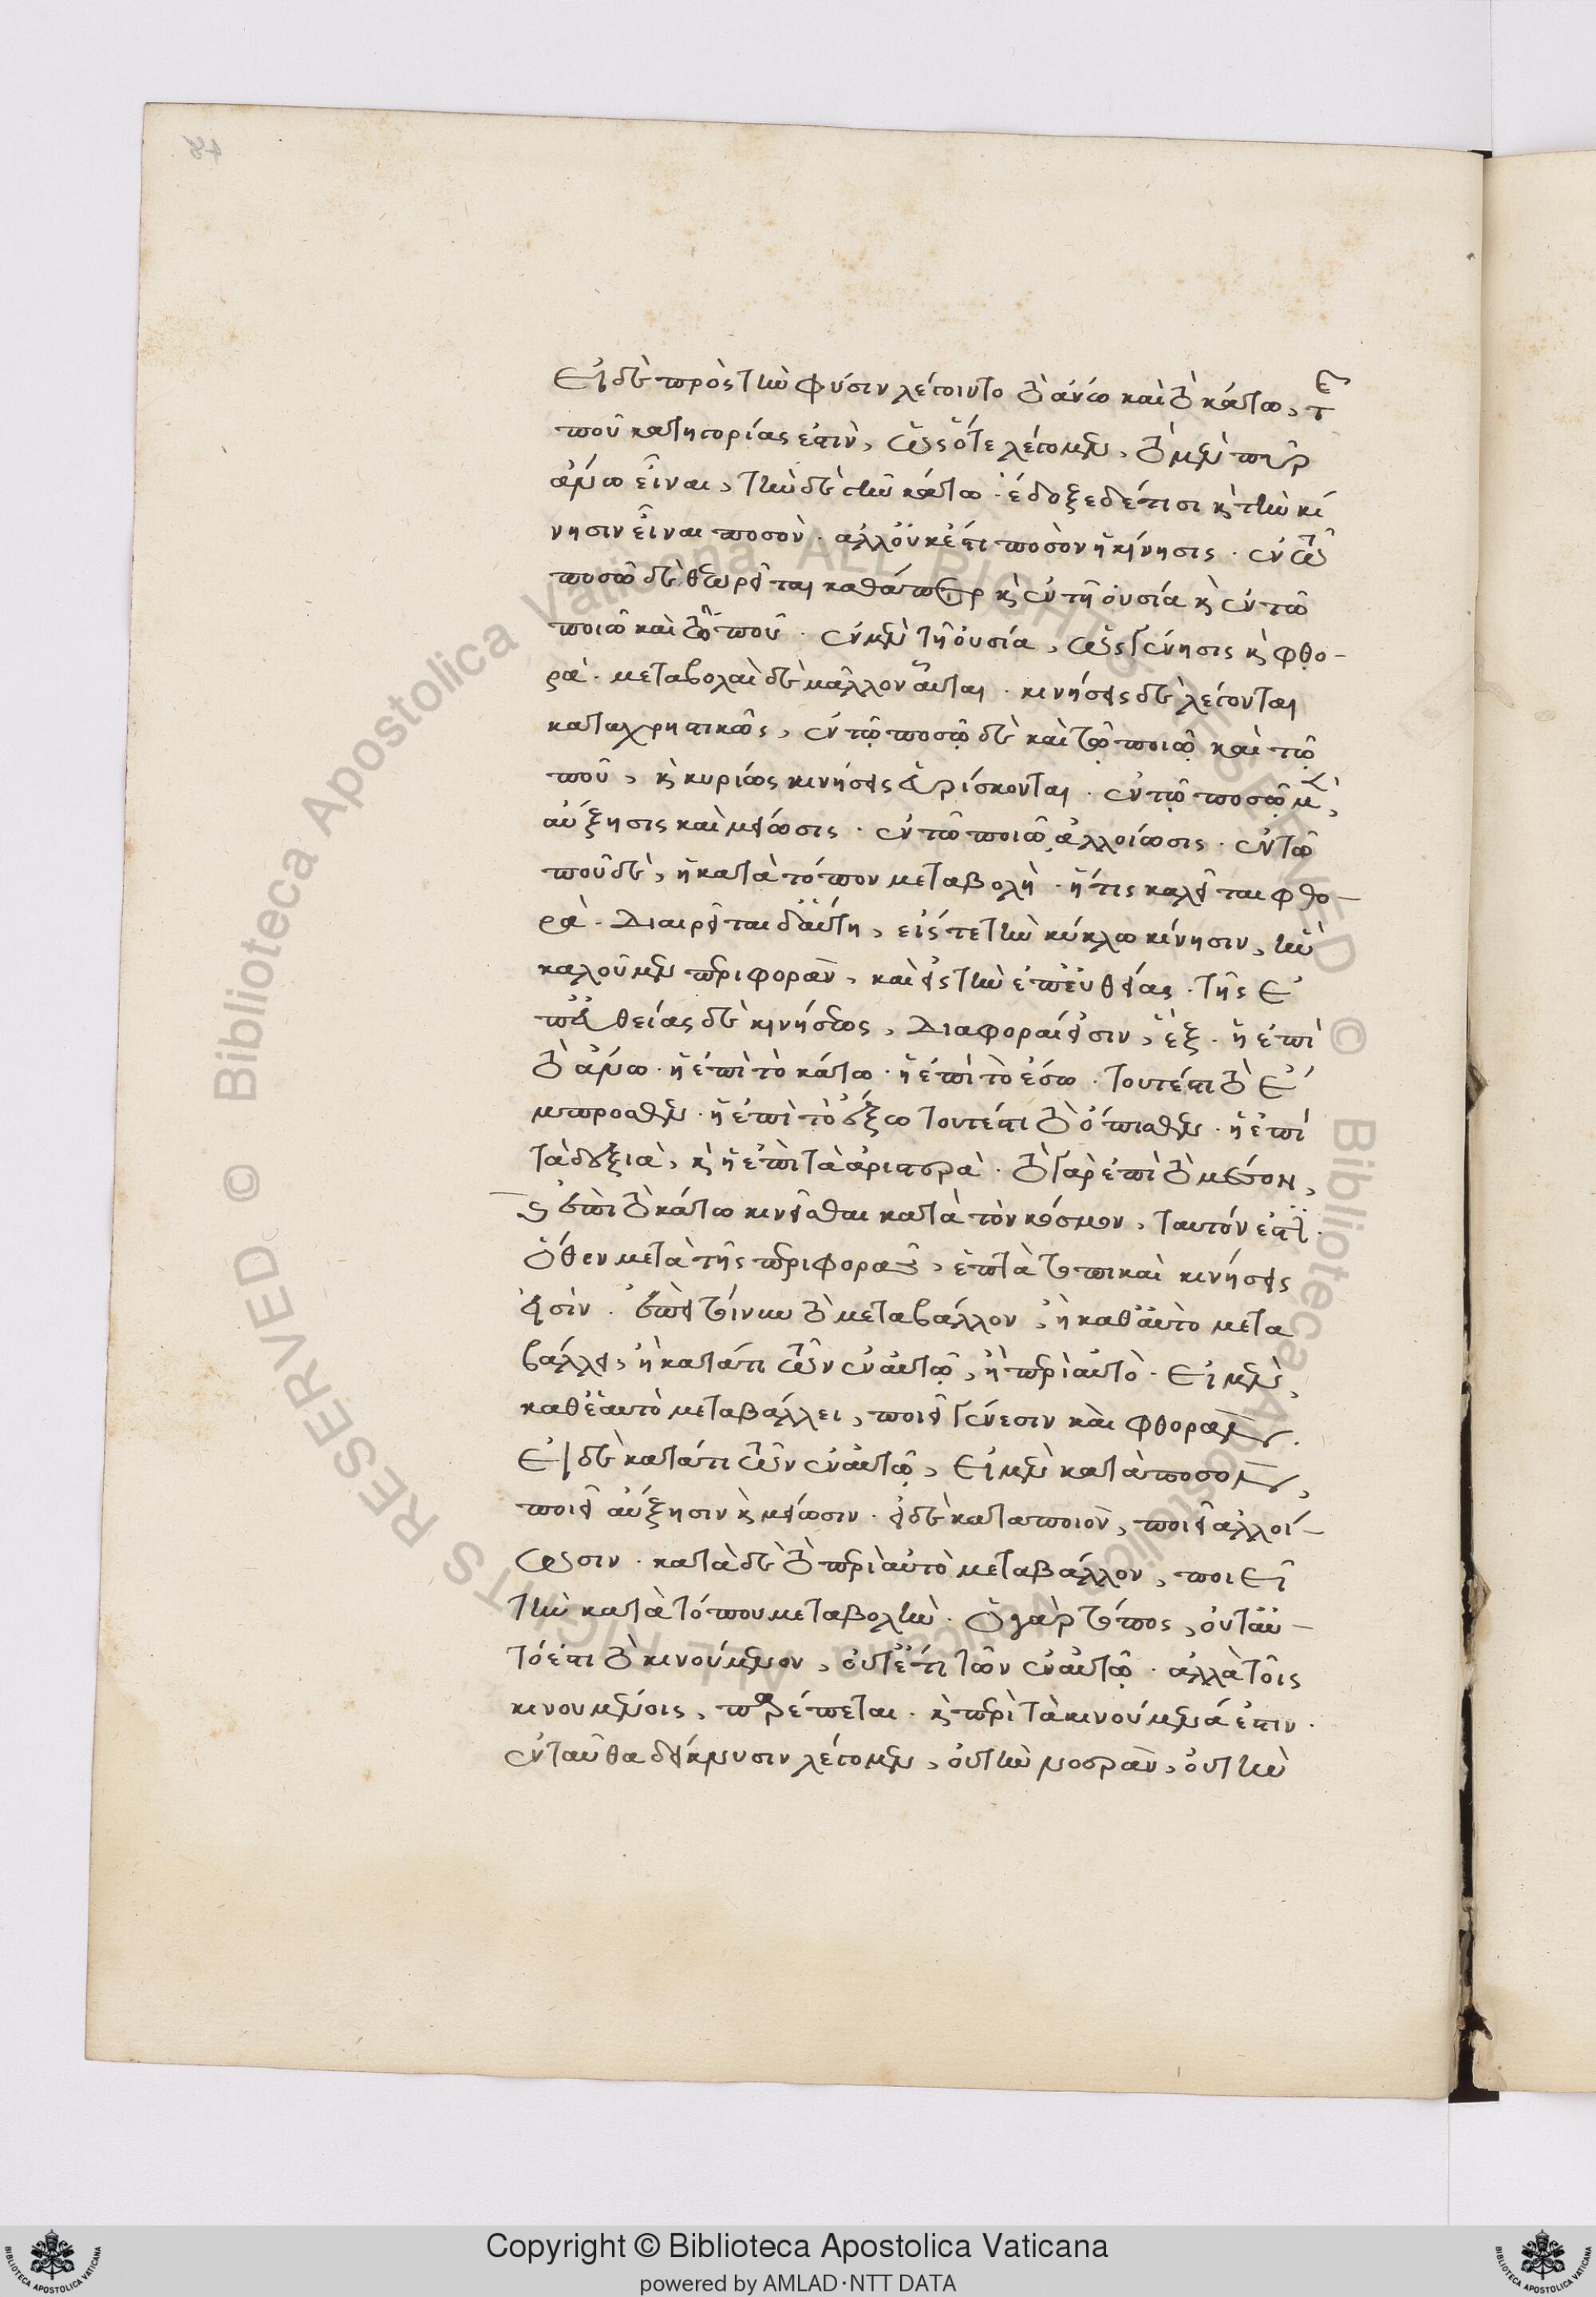 Εἰ δὲ πρὸς τὴν φύσιν λέγοιντο τὸ ἄνω καὶ τὸ κάτω, τ
ποῦ κατηγορίας ἐστὶν, ὡς ὅτε λέγομεν, τὸ μὲν πῦρ
ἄνω εἶναι, τὴν δὲ γῆν κάτω · ἔδοξε δέ τισι καὶ τὴν κί
νησιν εἶναι ποσὸν · ἀλλ' οὐκ ἔστι ποσὸν ἡ κίνησις · ἐν τῷ
ποσῶ δὲ θεωρεῖται καθάπερ καὶ ἐν τῇ οὐσία καὶ ἐν τῶ
ποιῶ καὶ τῶ ποῦ · ἐν μὲν τῇ οὐσία, ὡς γένησις καὶ φθο-
ρὰ · μεταβολαὶ δὲ μᾶλλον αὗται · κινήσεις δὲ λέγονται
καταχρηστικῶς, ἐν τῷ ποσῷ δὲ καὶ τῷ ποιῷ καὶ τῷ
ποῦ, καὶ κυρίως κινήσεις εὑρίσκονται · ἐν τῷ ποσῷ μὲν,
αὔξησις καὶ μείωσις · ἐν τῶ ποιῶ ἀλλοίωσις · ἐν τῶ
ποῦ δὲ, ἡ κατὰ τόπον μεταβολὴ · ἥτις καλεῖται φθο-
ρὰ · Διαιρεῖται δ' αὕτη, εἴς τε τὴν κύκλω κίνησιν, ἣν
καλοῦμεν περιφορὰν, καὶ εἰς τὴν ἐπ' εὐθείας · τῆς ἐ
π' εὐθείας δὲ κινήσεως, Διαφοραί εἰσιν, ἓξ · ἢ ἐπὶ
τὸ ἄνω · ἢ ἐπὶ τὸ κάτω · ἢ ἐπὶ τὸ ἔσω · τουτέστι τὸ ἔ
μπροσθεν · ἢ ἐπὶ τὸ ἔξω τουτέστι τὸ ὄπισθεν · ἢ ἐπὶ
τὰ δεξιὰ, καὶ ἢ ἐπὶ τὰ ἀριστερὰ · τὸ γὰρ ἐπὶ τὸ μέσον,
καὶ ἐπὶ τὸ κάτω κινεῖσθαι κατὰ τὸν κόσμον, ταυτόν ἐστι ·
Ὅθεν μετὰ τῆς περιφορᾶς, ἑπτὰ τοπικαὶ κινήσεις
εἰσὶν · ἐπεὶ τοίνυν τὸ μεταβάλλον, ἢ καθ' αὑτὸ μετα
βάλλει, ἢ κατά τι τῶν ἐν αὐτῷ, ἢ περὶ αὐτὸ · Εἰ μὲν,
καθ' ἑαυτὸ μεταβάλλει, ποιεῖ γένεσιν καὶ φθοράν.
Εἰ δὲ κατά τι τῶν ἐν αὐτῷ, Εἰ μὲν κατὰ ποσὸν,
ποιεῖ αὔξησιν καὶ μείωσιν · εἰ δὲ κατα ποιὸν, ποιεῖ ἀλλοί-
ωσιν · κατὰ δὲ τὸ περὶ αὐτὸ μεταβάλλον, ποιεῖ
τὴν κατὰ τόπου μεταβολὴν · Ὁ γὰρ τόπος, οὔτ' αὐ-
τό ἐστι τὸ κινούμενον, οὔτ' ἔστι τῶν ἐν αὐτῷ · ἀλλὰ τοῖς
κινουμένοις, παρέπεται · καὶ περὶ τὰ κινούμενά ἐστιν ·
ἐνταῦθα δὲ λέγομεν, οὐ τὴν οὐ τὴν